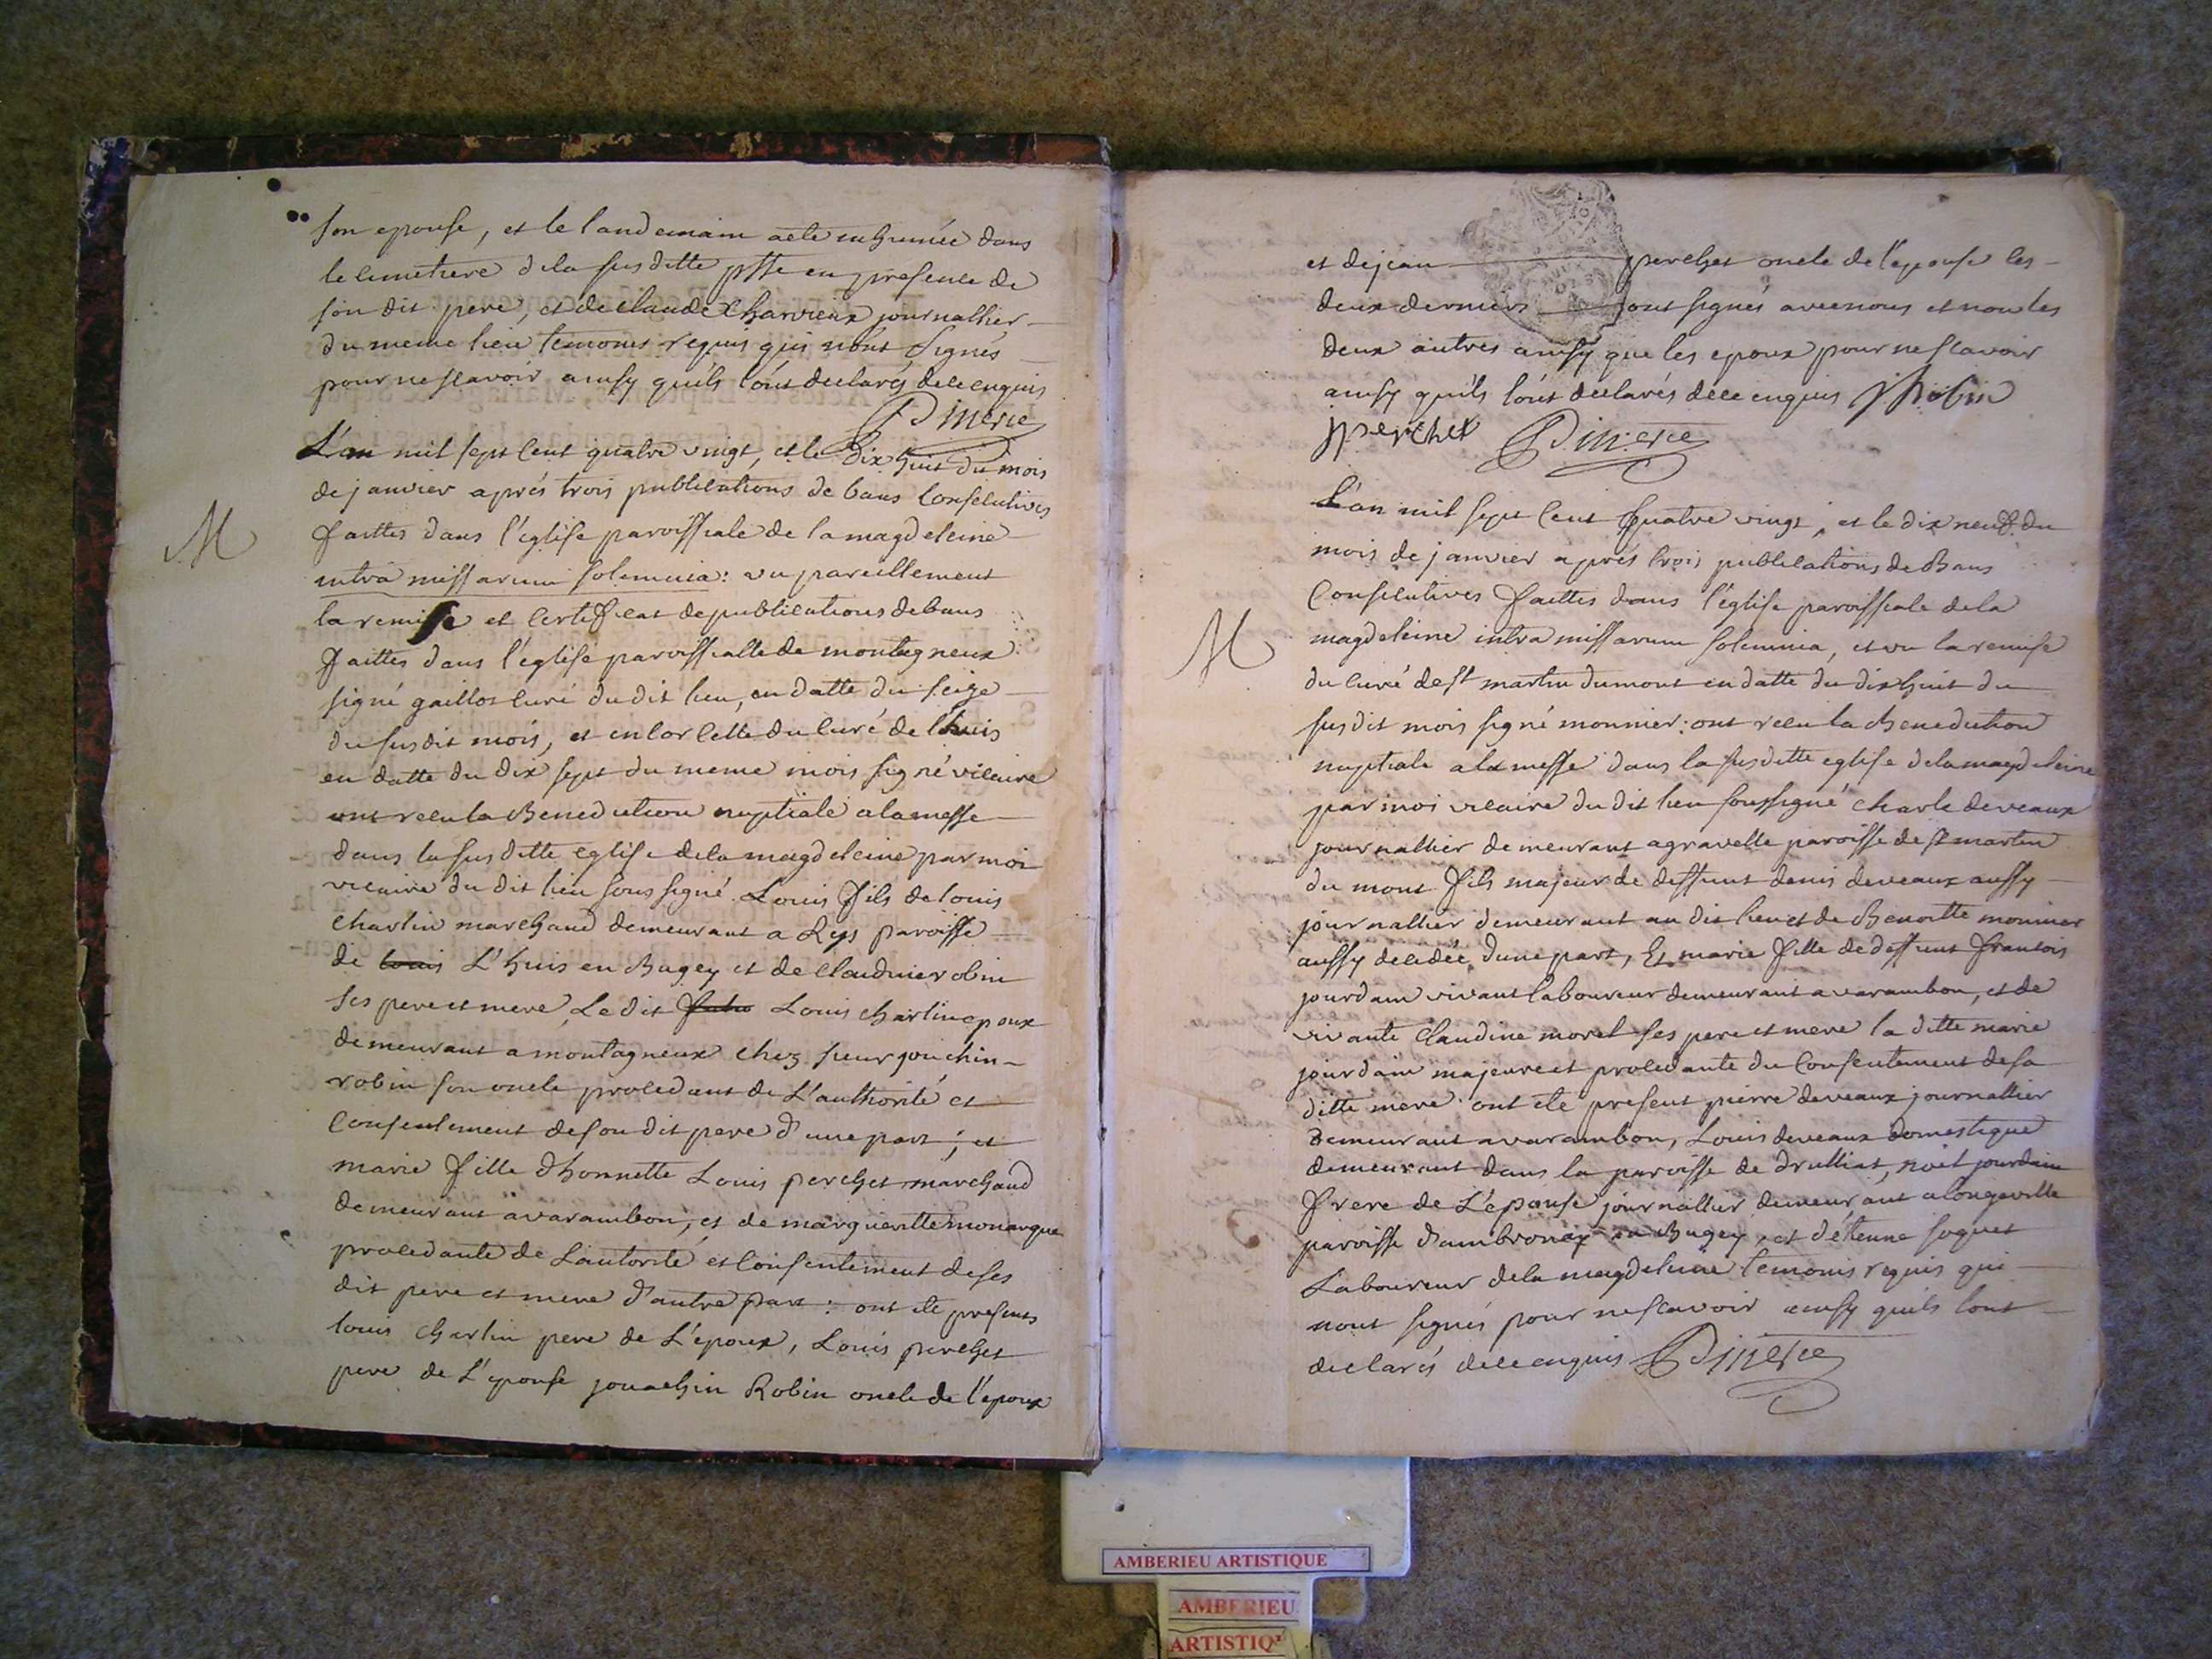 son epouse, et le landemain a ete inhumée dans
le cimetiere de la susditte psse en presence de
son dit pere, et de claude Charvieux journallier
du meme lieu temoins requis qui n'ont signés
pour ne scavoir ainsy qu'ils l'ont declarés de ce enquis
L'an mil sept cent quatre vingt, et le dix huit du mois
de janvier aprés trois publications de bans consecutives
M
faittes dans l'église paroissiale de la magdeleine
intrà missarum solemnia: vu pareillement
la remise et certificat de publications de bans
faittes dans l'église paroissialle de montagneux
signé gaillot curé du dit lieu, en datte du seize
du susdit mois, et en lor celle du curé de lhuis
en datte du dix sept du meme mois signé vicaire
ont recu la Benediction nuptiale a la messe
dans la susditte eglise de la magdeleine par moi
vicaire du dit lieu soussigné. Louis fils de louis
charlin marchand demeurant a Rys paroisse
de louis L'huis en Bugey et de claudine robin
ses pere et mere, Le dit Louis charlin epoux
demeurant a montagneux chez sieur jouchin
robin son oncle procedant de L'authorité et
consentement de son dit pere d'une part; et
marie fille dhonnette Louis perchet marchand
demeurant a varambon, et de margueritte monarque
procedante de Lautorité et consentement de ses
dit pere et mere d'autre part: ont ete presents
louis charlin pere de L'epoux, Louis perchet
pere de L'epouse jouachin Robin oncle de l'epoux
et de jean perchet oncle de l'epouse les
deux derniers sont signés avec nous et non les
deux autres ainsy que les epoux pour ne scavoir
ainsy qu'ils l'ont déclarés de ce enquis J Robin
J perchet
L'an mil sept cent quatre vingt, et le dix neuf du
mois de janvier aprés trois publications de Bans
Consecutives faittes dans l'église paroissiale de la
M
magdeleine intra missarum solemnia, et vu la remise
du curé de st martin du mont en datte du dix huit du
susdit mois signé monnier: ont recu la Benediction
nuptiale a la messe dans la susditte eglise de la magdeleine
par moi vicaire du dit lieu soussigné charle deveaux
journallier demeurant a gravelle paroisse de st martin
du mont fils majeur de deffunt denis deveaux aussy
journallier demeurant au dit lieu et de Benoitte monnier
aussy decedée d'une part, Et marie fille de deffunt francois
jourdain vivant laboureur demeurant a varambon, et de
vivante Claudine morel ses pere et mere la ditte marie
jourdain majeure et procedante du Consentement de sa
ditte mere ont ete present pierre deveaux journallier
demeurant a varambon, Louis deveaux domestique
demeurant dans la paroisse de druillat, noël jourdain
frere de L'épouse journallier demeurant a longeville
paroisse d'ambronay en Bugey, et d'étienne soquet
Laboureur de la magdeleine temoins requis qui
n'ont signés pour ne scavoir ainsy qu'ils l'ont
declarés de ce enquis
AMBERIEU ARTISTIQUE
AMBERIEU
ARTISTIQ